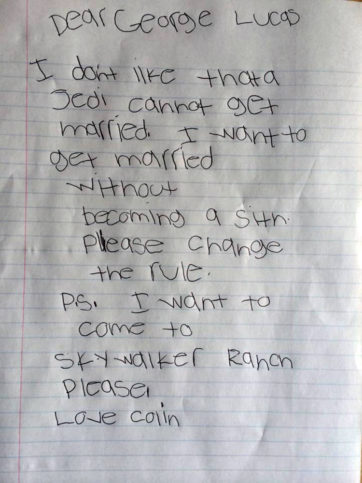 Dear George Lucas
I don't like that a
Jedi cannot get
married. I want to
get married
without
becoming a Sith.
Please change
the rule.
PS. I want to
come to
Skywalker Ranch
Please.
Love Colin